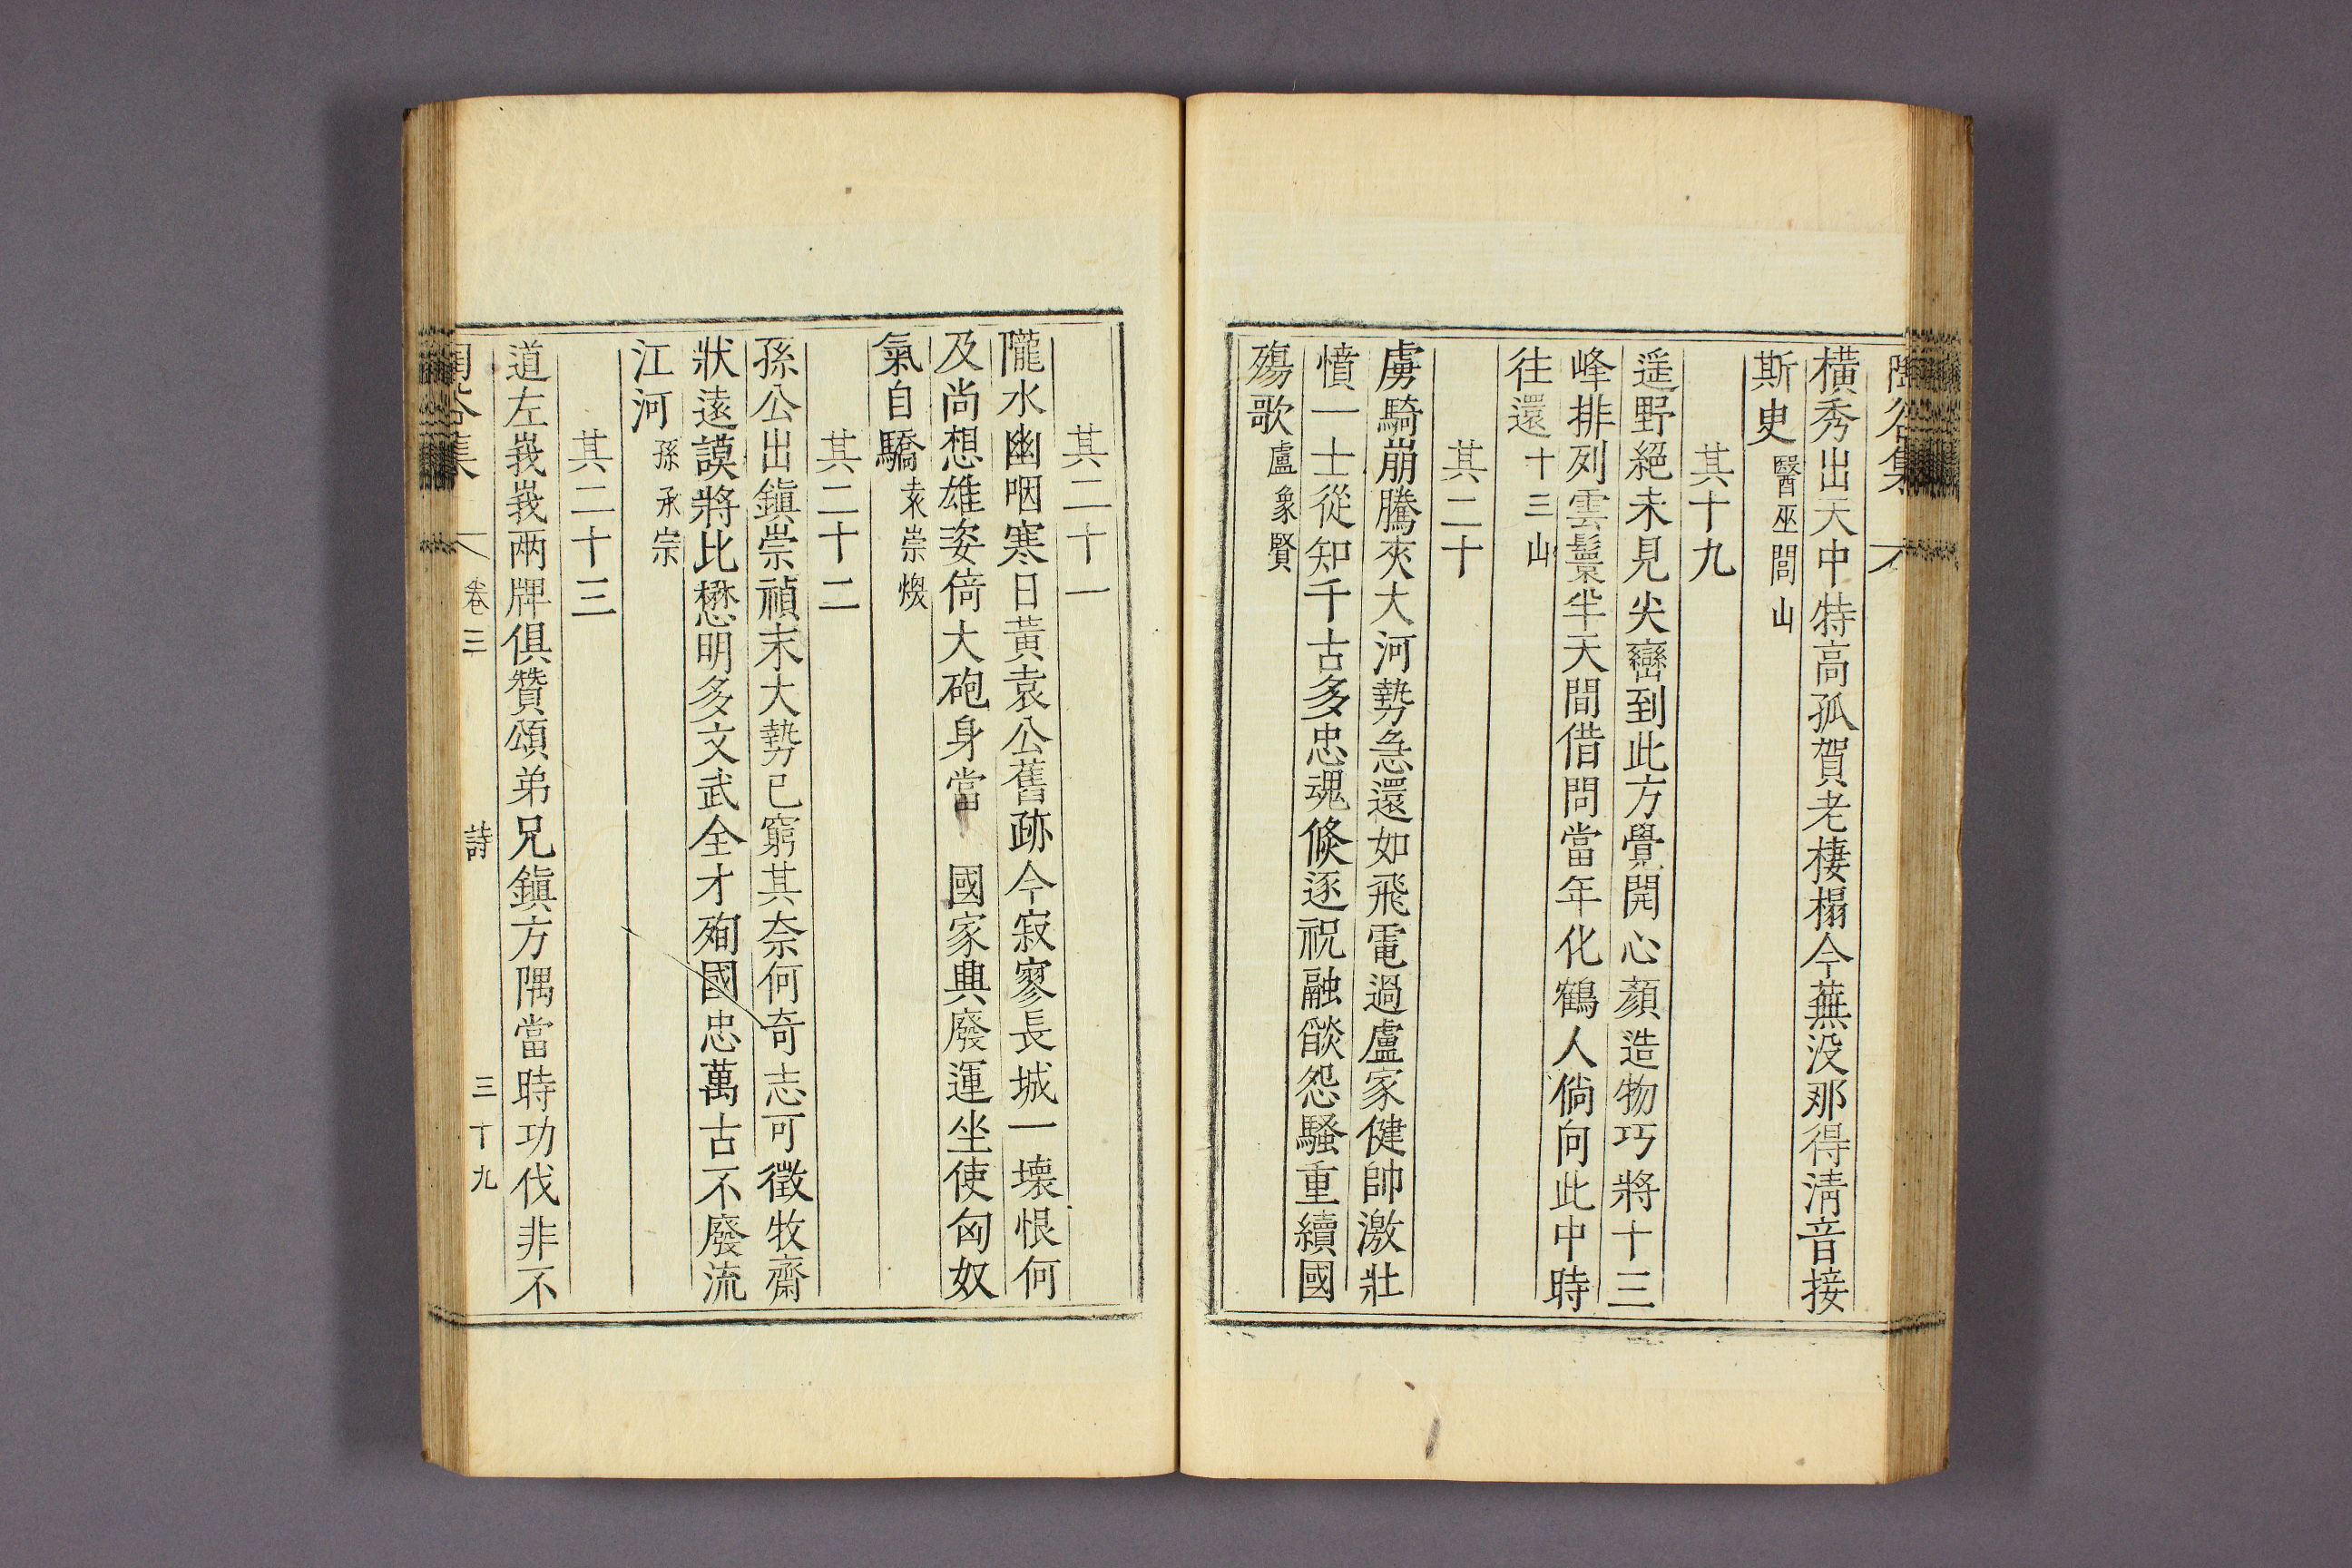 橫秀出天中特高孤賀老棲榻今蕪没那得淸音接
斯史醫巫閭山
其十九
遥野絕未見尖巒到此方覺開心顏造物巧將十三
峰排列雲鬟半天間借問當年化鶴人倘向此中時
往還十三山
其二十
虜騎崩騰夾大河勢急還如飛電過盧家健帥激壯
憤一士從知千古多忠魂倐逐祝融燄怨騷重續國
殤歌盧象賢
其二十一
隴水幽咽寒日黃袁公舊跡今寂寥長城一壊恨何
及尚想雄姿倚大砲身當 國家興廢運坐使匈奴
氣自驕袁崇煥
其二十二
孫公出鎭崇禎末大勢已窮其奈何奇志可徵牧齋
狀遠謨將比懋明多文武全才殉國忠萬古不廢流
江河孫承宗
其二十三
道左峩峩兩牌俱贊頌弟兄鎭方隅當時功伐非不
卷三 詩 三十九